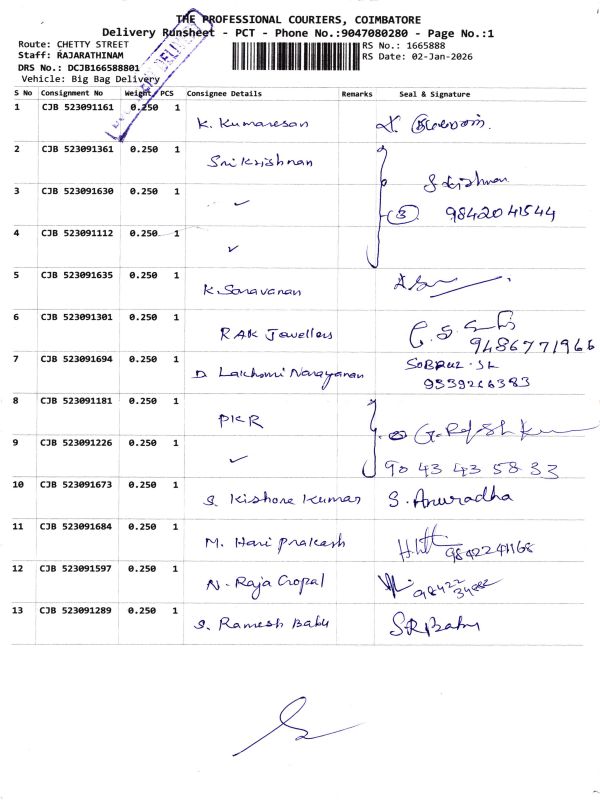 THE PROFESSIONAL COURIERS, COIMBATORE
Delivery Runsheet - PCT - Phone No.:9047080280 - Page No.:1
Route: CHETTY STREET RS No.: 1665888
Staff: RAJARATHINAM RS Date: 02-Jan-2026
DRS No.: DCJB166588801
Vehicle: Big Bag Delivery
S No Consignment No Weight PCS Consignee Details Remarks Seal & Signature
1 CJB 523091161 0.250 1 K. Kumaresan
2 CJB 523091361 0.250 1 Sri Krishnan
3 CJB 523091630 0.250 1 ✓ 3 9842041544
4 CJB 523091112 0.250 1 ✓
5 CJB 523091635 0.250 1 K. Saravanan
6 CJB 523091301 0.250 1 RAK Jewellers 9486771966
7 CJB 523091694 0.250 1 D Lakshmi Narayanan 9339266383
8 CJB 523091181 0.250 1 PKR
9 CJB 523091226 0.250 1 ✓ 90 43 43 58 33
10 CJB 523091673 0.250 1 S. Kishore Kumar S. Anuradha
11 CJB 523091684 0.250 1 M. Hari Prakash 9842241168
12 CJB 523091597 0.250 1 N. Raja Gopal
13 CJB 523091289 0.250 1 S. Ramesh Babu S.R Babu